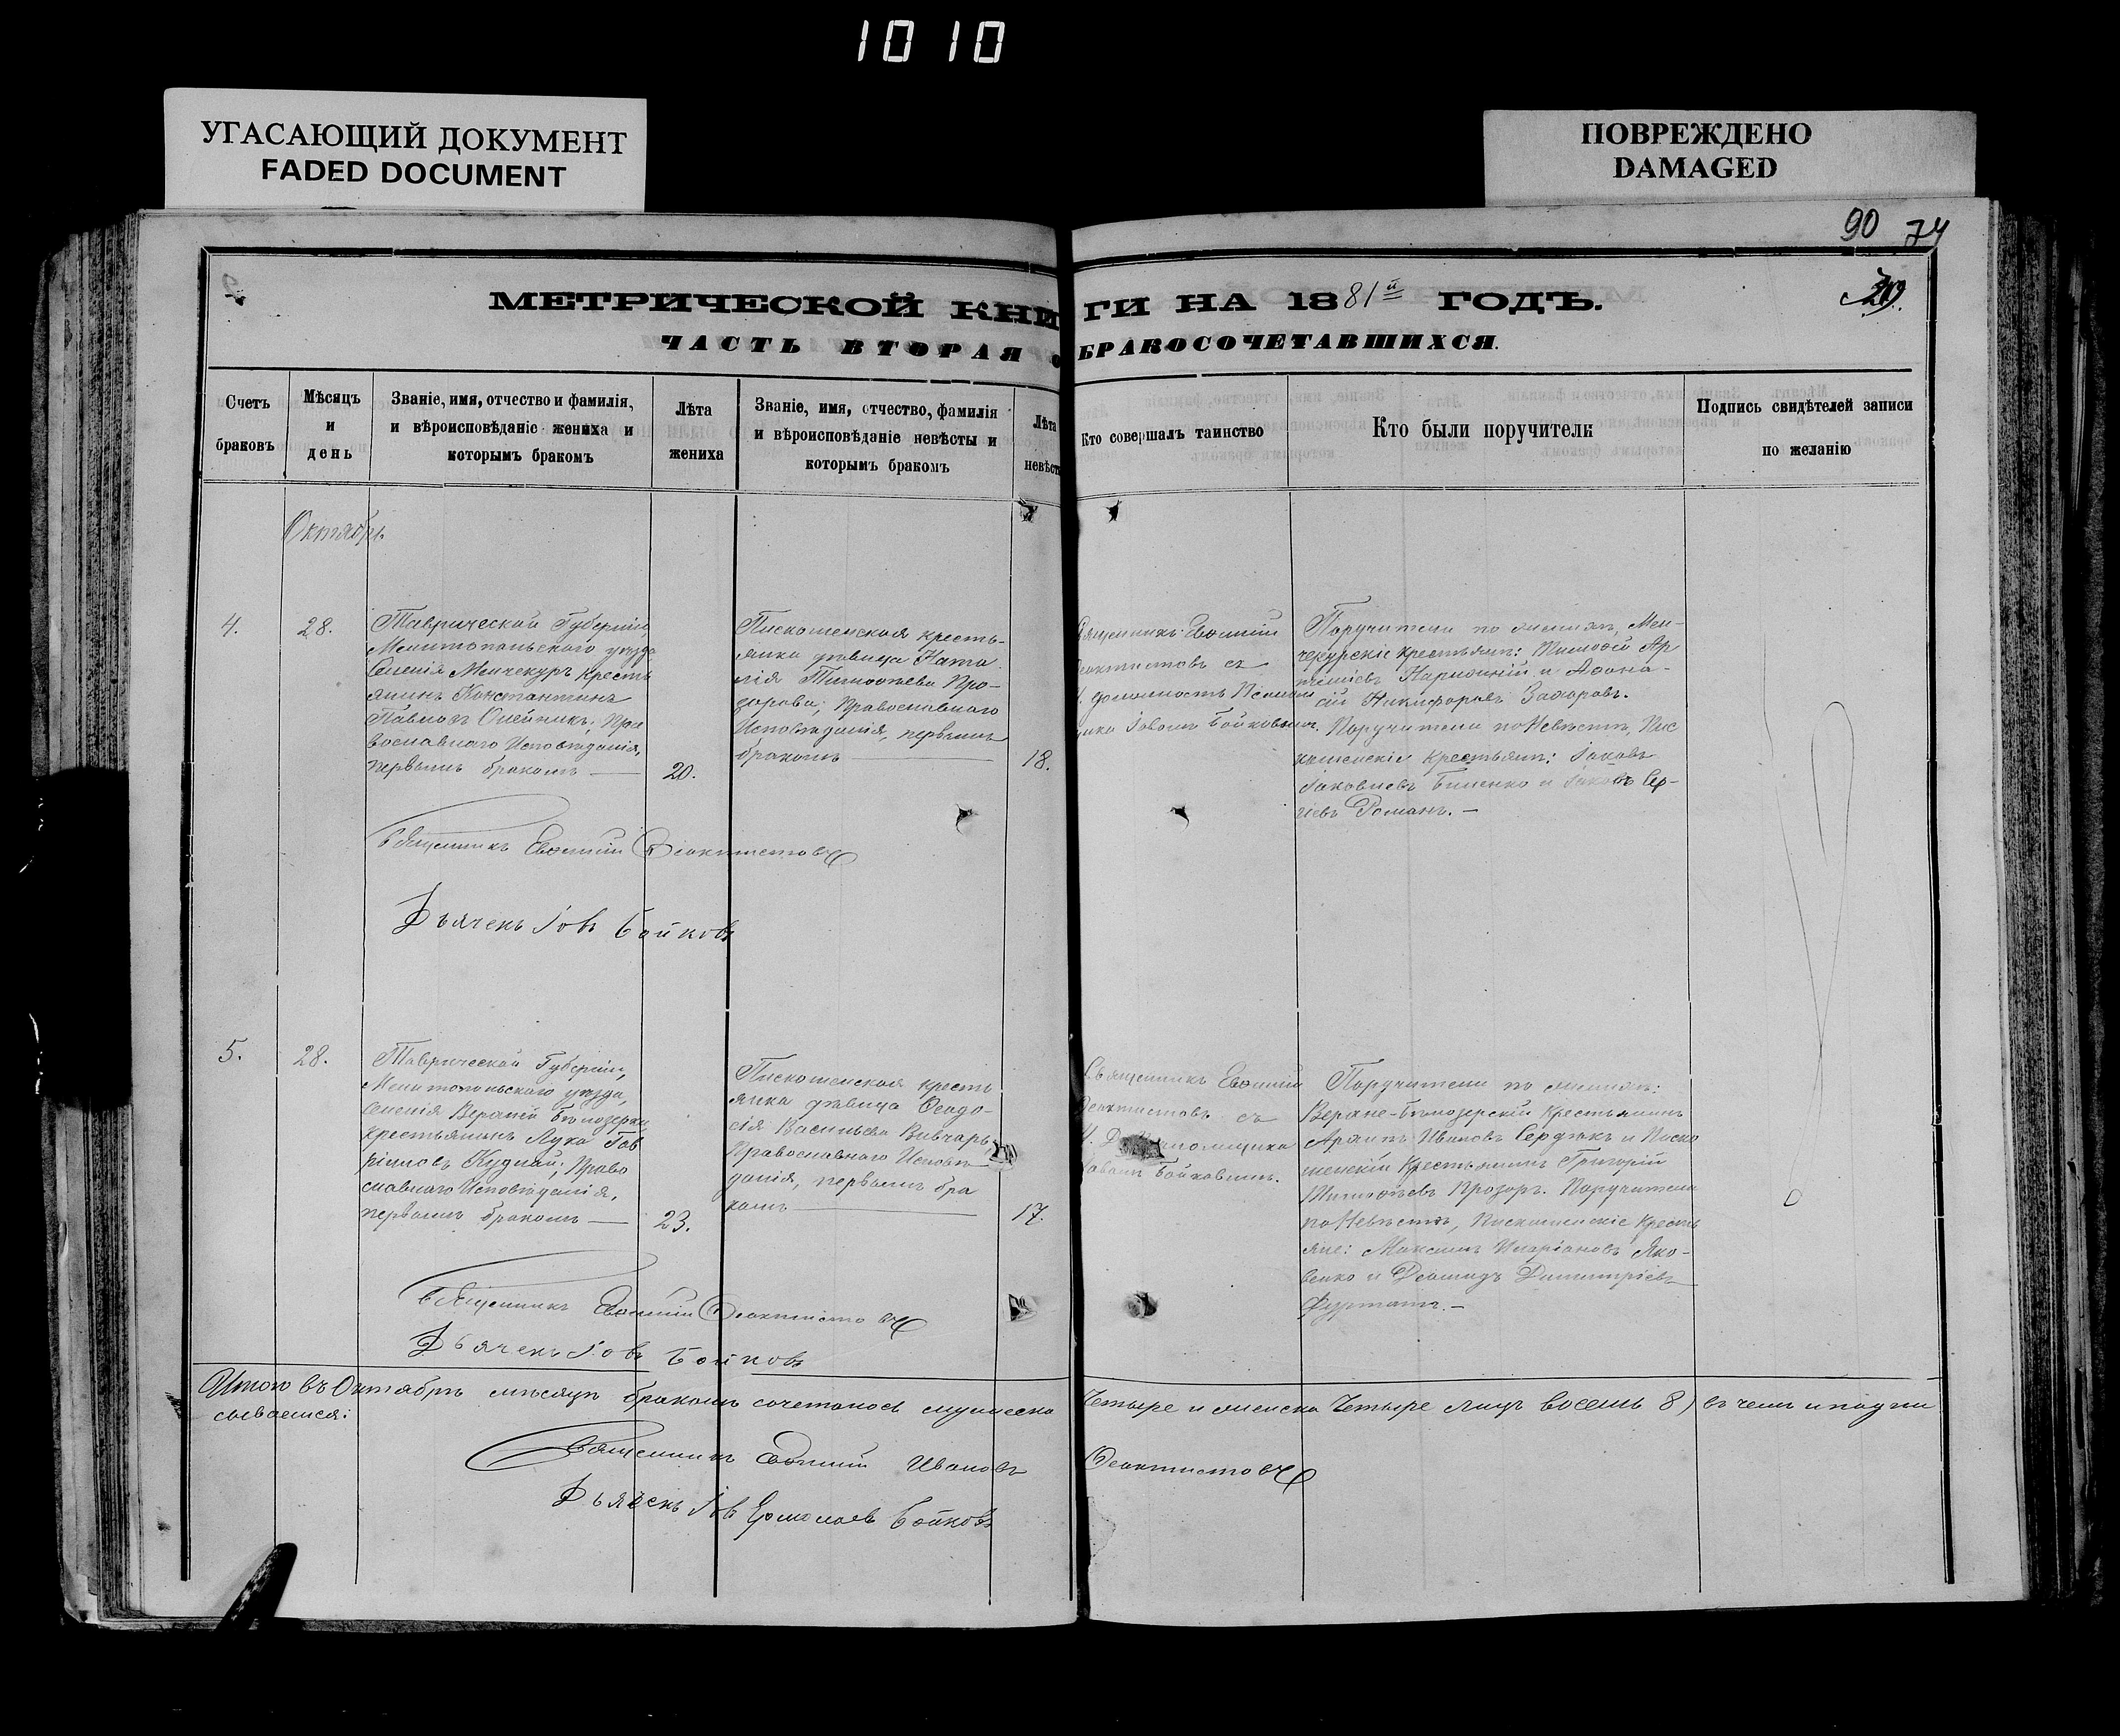 1010
УГАСАЮЩИЙ ДОКУМЕНТ
FADED DOCUMENT
ПОВРЕЖДЕНО
DAMAGED
90 74
МЕТРИЧЕСКОЙ КНИГИ НА 1881й ГОДЪ.
ЧАСТЬ ВТОРАЯ о БРАКОСОЧЕТАВШИХСЯ.
Счетъ
браковъ
Мѣсяцъ
и
день
Званіе, имя, отчество и фамилія,
и вѣроисповѣданіе жениха и
которымъ бракомъ
Лѣта
жениха
Званіе, имя, отчество, фамилія
и вѣроисповѣданіе невѣсты и
которымъ бракомъ
Лѣта
невѣст
Кто совершалъ таинство
Кто были поручители
Подпись свидѣтелей записи
по желанію
Октябрь
4.
28.
Таврической Губерніи
Мелитопольскаго уѣзда
Селенія Менчекуръ кресть
янинъ Константинъ
Павловъ Олейникъ; Пра
вославнаго Исповѣданія,
первымъ бракомъ —
20.
Пискошенская кресть-
янка дѣвица Ната
лія Тимоѳѣева Про-
зорова; Православнаго
Исповѣданія, первымъ
бракомъ —
18.
Священникъ Евѳимій
Ѳеоктистовъ съ
И. должность Псалом
щика Іовомъ Бойковымъ.
Поручители по женихѣ, Мен-
чекурскіе крестьяне: Тимоѳей Ар
Никифоровъ Захаровъ.
Поручители по Невѣстѣ, Пис
кошенскіе крестьяне: Іаковъ
Іаковлевъ Биленко и Іаковъ Сер-
гіевъ Романъ. —
Священникъ Евѳимій Ѳеоктистовъ
Дьячекъ Іовъ Бойковъ
5.
28.
Таврической Губерніи,
Мелитопольскаго уѣзда,
селенія Верхній Бѣлозерки
крестьянинъ Лука Гав
ріиловъ Куднай; Право
славнаго Исповѣданія,
первымъ бракомъ —
23.
Пискошенская кресть
янка дѣвица Ѳеодо-
сія Васильева Вивчарь,
Православнаго Исповѣ
данія, первымъ бра
комъ —
17.
Священникъ Евѳимій
Ѳеоктистовъ съ
Іовомъ Бойковымъ.
Поручители по женихѣ:
Верхне-Бѣлозерскій Крестьянинъ
Ивановъ Сердюкъ и Писко
шенскій Крестьянинъ Григорій
Тимоѳѣевъ Прозоръ. Поручители
по Невѣстѣ, Пискошенскіе Кресть
яне: Максимъ Иларіоновъ Яко-
венко и Діомидъ Димитріевъ
Фурманъ. —
Священникъ Евѳимій Ѳеоктистовъ
Дьячекъ Іовъ Бойковъ
Итого въ Октябрѣ мѣсяцѣ бракомъ сочеталось мужеска Четыре и женска Четыре лицъ восемь 8) въ чемъ и подпи
сываемся:
Священникъ Евѳимій Ивановъ Ѳеоктистовъ
Дьячекъ Іовъ Ермолаевъ Бойковъ